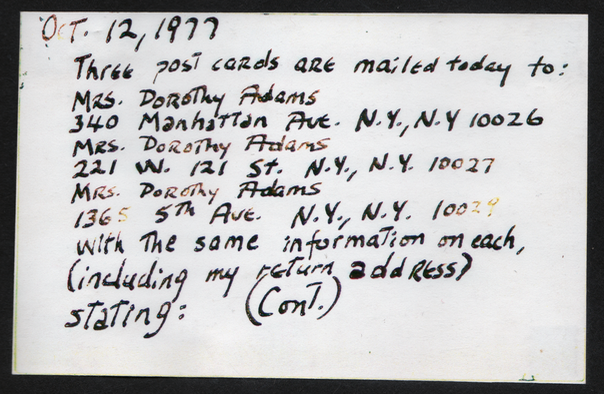 Oct. 12, 1977
Three post cards are mailed today to:
Mrs. Dorothy Adams
340 Manhattan Ave. N.Y., N.Y 10026
Mrs. Dorothy Adams
221 W. 121 St. N.Y., N.Y. 10027
Mrs. Dorothy Adams
1365 5th Ave. N.Y., N.Y. 10029
with the same information on each,
(including my return address)
stating: (Cont.)